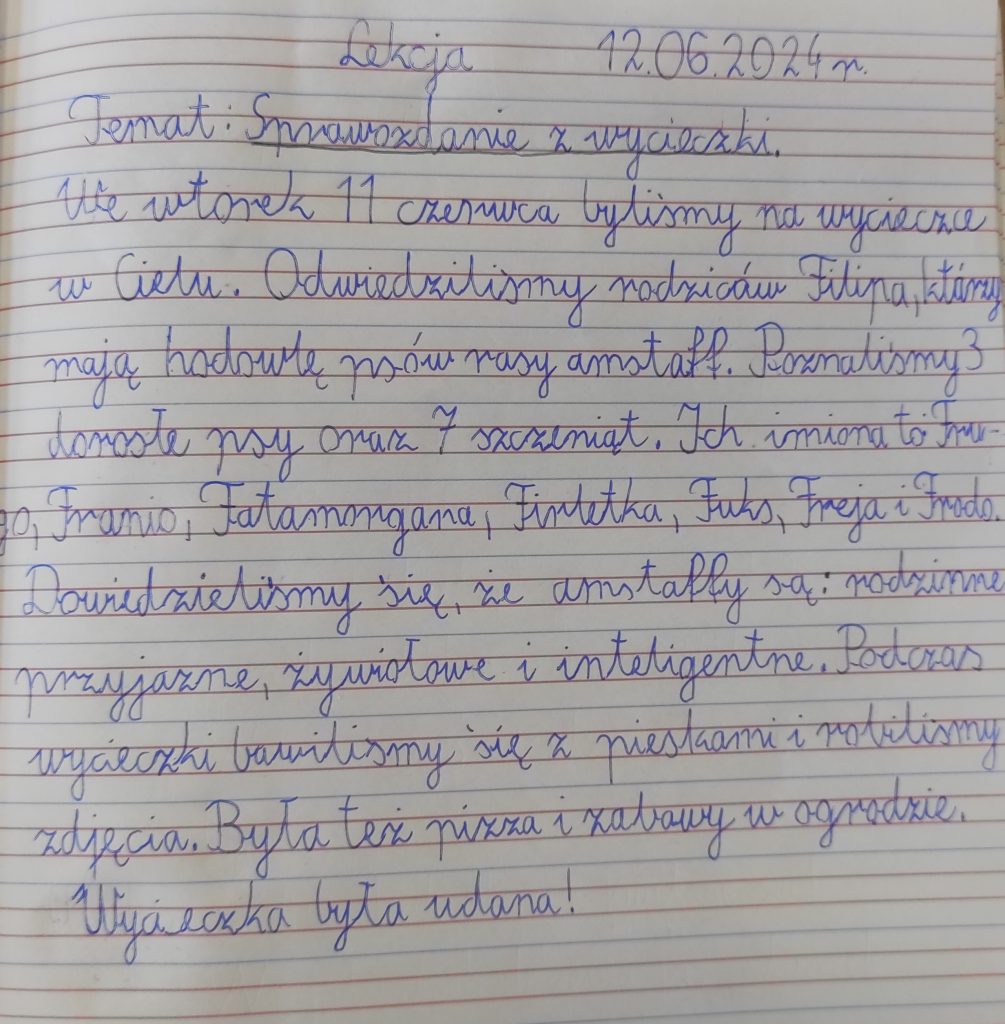 Lekcja 12.06.2024 r.
Temat: Sprawozdanie z wycieczki.
We wtorek 11 czerwca byliśmy na wycieczce
w Cielu. Odwiedziliśmy rodziców Filipa, którzy
mają hodowlę psów rasy amstaff. Poznaliśmy 3
dorosłe psy oraz 7 szczeniąt. Ich imiona to Fru-
go, Franio, Fatamorgana, Firletka, Fuks, Freja i Frodo.
Dowiedzieliśmy się, że amstaffy są: rodzinne
przyjazne, żywiołowe i inteligentne. Podczas
wycieczki bawiliśmy się z pieskami i robiliśmy
zdjęcia. Była też pizza i zabawy w ogrodzie.
Wycieczka była udana!